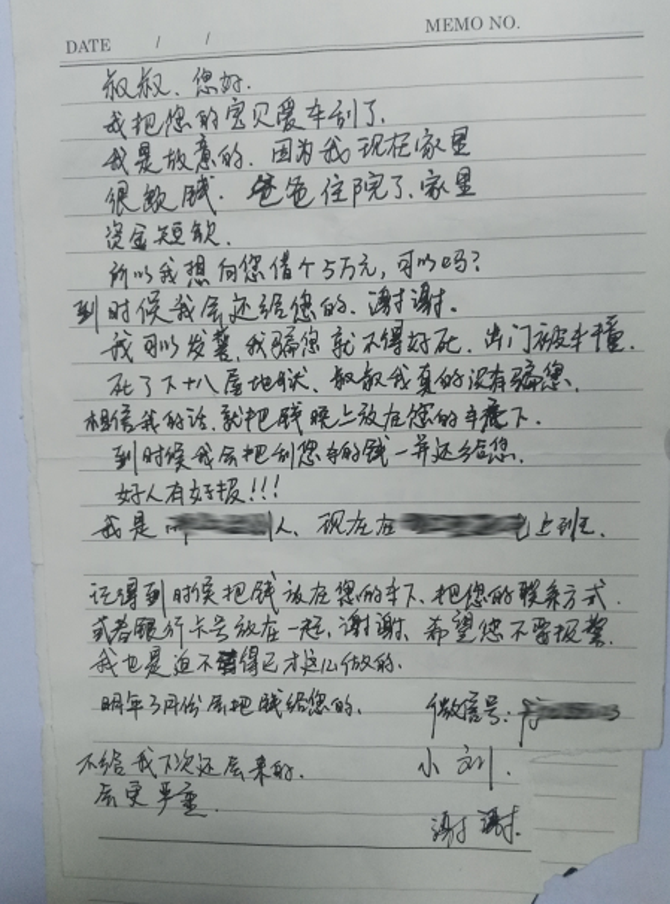 DATE / /
MEMO NO.
叔叔、您好.
我把您的宝贝爱车刮了.
我是故意的. 因为我现在家里
很缺钱. 爸爸住院了、家里
资金短缺.
所以我想向您借个5万元，可以吗？
到时候我会还给您的. 谢谢.
我可以发誓，我骗您就不得好死. 出门被车撞.
死了下十八层地狱、叔叔我真的没有骗您.
相信我的话、就把钱晚上放在您的车底下.
到时候我会把刮您车的钱一并还给您.
好人有好报!!!
我是 人、现在在 上班.
记得到时候把钱放在您的车下、把您的联系方式.
或者银行卡号放在一起，谢谢、希望您不要报警.
我也是迫不得已才这么做的.
明年3月份会把钱给您的.
微信号:
不给我下次还会来的.
小刘.
会更严重.
谢谢.